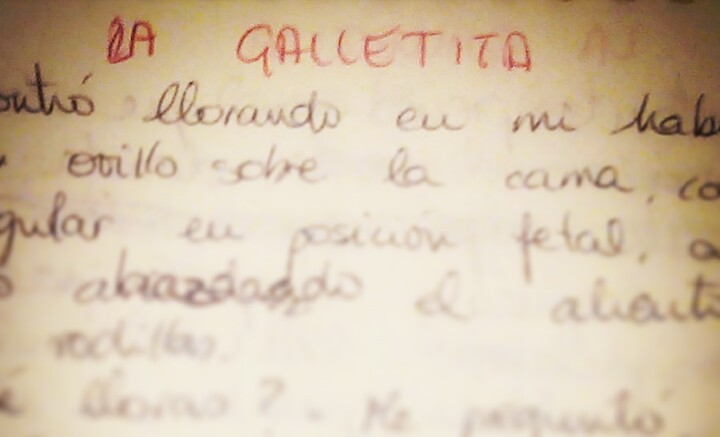 LA GALLETITA
ontró llorando en mi hab
ovillo sobre la cama, co
gular en posición fetal, a
o abrazdando el alient
rodillas.
é lloras? - Me preguntó